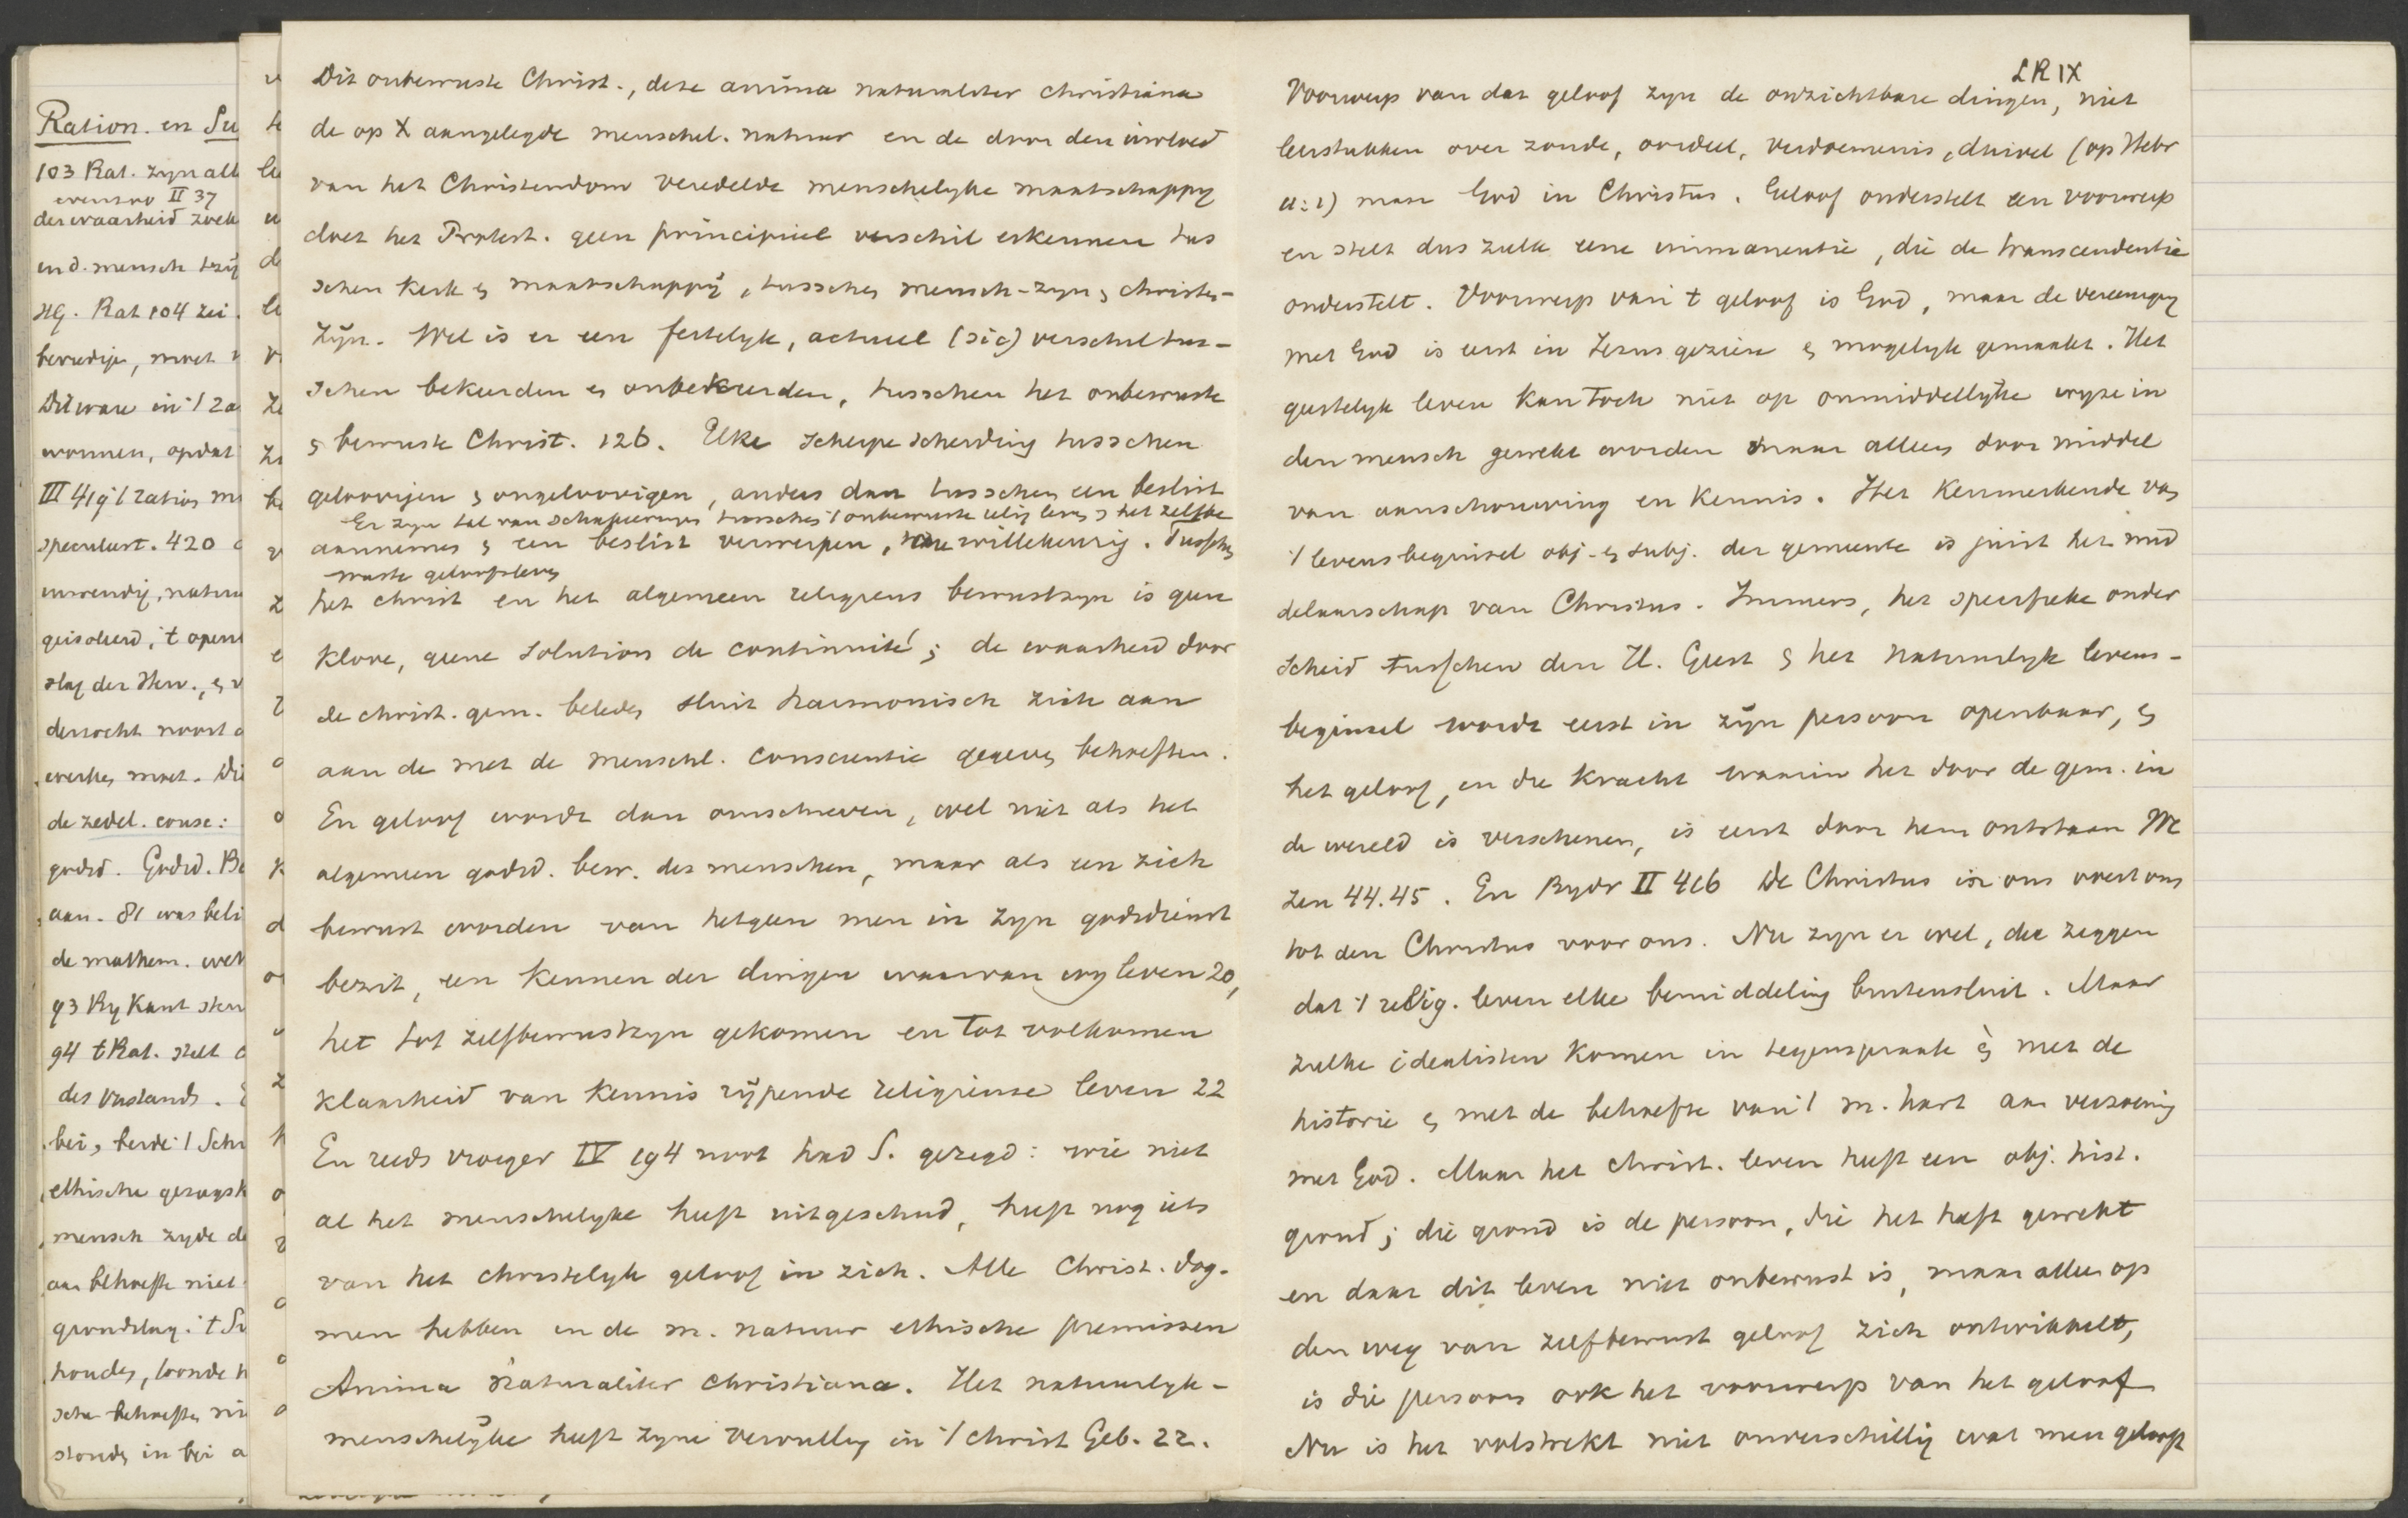 Ration. en Su
103 Rat. zyn all
evenzoo II 37
der waarheid zoek
in d. mensch
HG. Rat 104 zei
bevredige, moet
Dit ware in 't za
wonnen, opdat
III 419 't ratio
speculat. 420
inwendig, natuu
geisoleerd, 't open
slag der Herv., en
derzocht
werken moet. Di
de zedel. consc:
godsd. Godsd. Be
aan. 81 was beli
de mathem. wet
93 By Kant
94 't Rat. stelt
des verstands.
bei, beide 't Schr
ethische gezagsk
mensch zyde de
aan behoefte niet
grondslag. 't Su
houden, konde
sche behoeften
stonden in bei a
Dit onbewuste Christ., deze anima naturaliter christiana
de op X aangelegde menschel. natuur en de door den invloed
van het Christendom veredelde menschelyke maatschappy
doet het Protest. geen principieel verschil erkennen tus
schen Kerk en maatschappij, tusschen mensch-zyn en christen-
zijn. Wel is er een feitelyk, actueel (sic) verschil tus-
schen bekeerden en onbekeerden, tusschen het onbewuste
en bewuste Christ. 126. Elke scherpe scheiding tusschen
geloovigen en ongeloovigen, anders dan tusschen een beslist
Er zyn tal van schakeeringen tusschen 't onbewuste relig leven en het zelfbe
aannemen en een beslist verwerpen, is willekeurig. Tusschen
wuste geloofsleven
het christ en het algemeen religieus bewustzyn is geen
Klove, geene solution de continuité; de waarheid door
de christ. gem. beleden sluit harmonisch zich aan
aan de met de menschl. conscientie gegeven behoeften.
En geloof wordt dan omschreven, wel niet als het
algemeen godsd. bew. des menschen, maar als een zich
bewust worden van hetgeen men in zyn godsdienst
bezit, een kennen der dingen waarvan wy leven 20,
het tot zelfbewustzyn gekomen en tot volkomen
klaarheid van kennis rijpende religieuse leven 22
En reeds vroeger IV 194 noot had S. gezegd: wie niet
al het menschelyke heeft uitgeschud, heeft nog iets
van het christelyk geloof in zich. Alle Christ. dog-
men hebben in de m. natuur ethische premissen
Anima naturaliter christiana. Het natuurlyk-
menschelijke heeft zyne vervulling in 't christ Geb. 22.
LR IX
Voorwerp van dat geloof zyn de onzichtbare dingen, niet
leerstukken over zonde, oordeel, verdoemenis, duivel (op Hebr
11:1) maar God in Christus. Geloof onderstelt een voorwerp
en stelt dus zulk eene immanentie, die de transcendentie
onderstelt. Voorwerp van 't geloof is God, maar de vereeniging
met God is eerst in Jezus gezien en mogelyk gemaakt. Het
geestelyk leven kan toch niet op onmiddellijke wyze in
den mensch gewekt worden maar alleen door middel
van aanschouwing en kennis. Het kenmerkende van
't levensbeginsel obj. en subj. der gemeente is juist het mid
delaarschap van Christus. Immers, het specifieke onder
scheid tusschen den H. Geest en het natuurlyk levens-
beginsel wordt eerst in zijn persoon openbaar, en
het geloof, en die kracht waarin het door de gem. in
de wereld is verschenen, is eerst door hem ontstaan We
zen 44.45. En Bydr II 416 De Christus in ons voert ons
tot den Christus voor ons. Nu zyn er wel, die zeggen
dat 't relig. leven elke bemiddeling buitensluit. Maar
zulke idealisten komen in tegenspraak èn met de
historie en met de behoefte van 't m. hart aan verzoening
met God. Maar het christ. leven heeft een obj. hist.
grond; die grond is de persoon, die het heeft gewekt
en daar dit leven niet onbewust is, maar alleen op
den weg van zelfbewust geloof zich ontwikkelt,
is die persoon ook het voorwerp van het geloof
Nu is het volstrekt niet onverschillig wat men gelooft